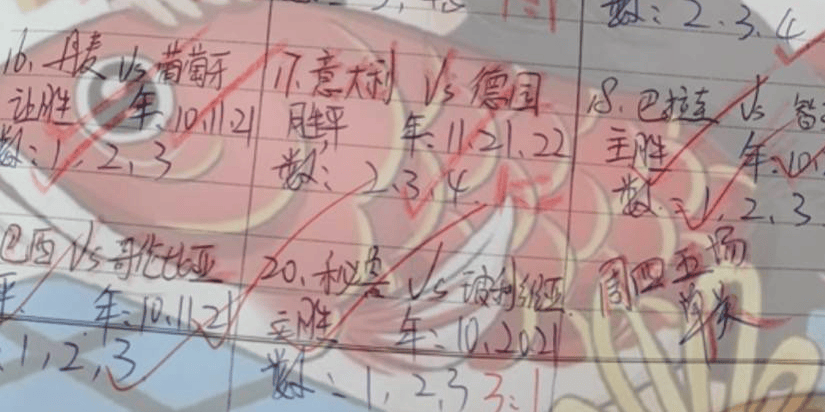 数:2.3.4
16、丹麦 Vs 葡萄牙
让胜 年:10.11.21
数:1,2,3
17.意大利 Vs 德国
胜平 年:11.21.22
数:2.3.4
18.巴拉圭 Vs 智
主胜 年:10.
数:1,2,3
巴西 Vs 哥伦比亚
平 年:10.11.21
:1,2,3
20、秘鲁 Vs 玻利维亚
主胜 年:10.20.21
数:1,2,3 3:1
周四五场